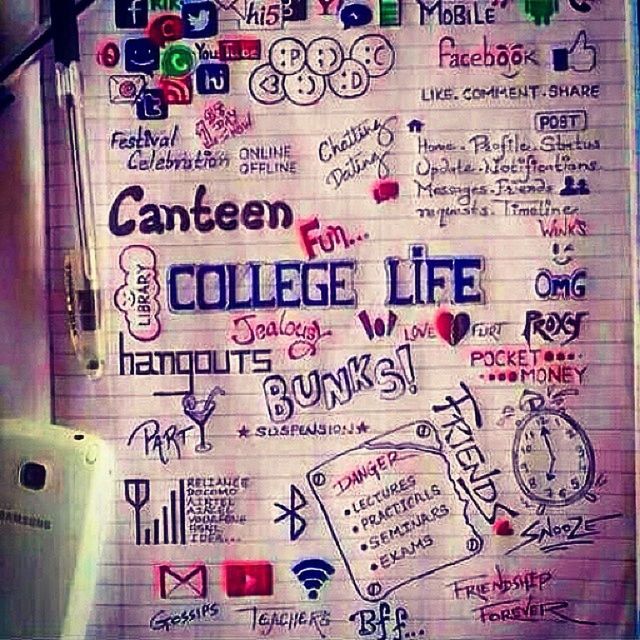 hi5
MOBILE
You Tube
Facebook
LIKE. COMMENT. SHARE
POST
Festival
Celebration
ONLINE
OFFLINE
Chatting
Dating
Home. Profile. Status
Update. Notifications.
Messages. Friends
requests. Timeline
Canteen
Fun...
WINKS
LIBRARY
COLLEGE LIFE
OMG
Jealousy
LOVE
FLIRT
PROXY
hangouts
POCKET
MONEY
BUNKS!
PARTY
SUSPENSION
FRIENDS
DANGER
• LECTURES
• PRACTICALS
• SEMINARS
• EXAMS
RELIANCE
DOCOMO
AIRTEL
AIRCEL
VODAFONE
BSNL
IDEA...
SAMSUNG
SNOOZE
GOSSIPS
TEACHERS
Bff...
FRIENDSHIP
FOREVER